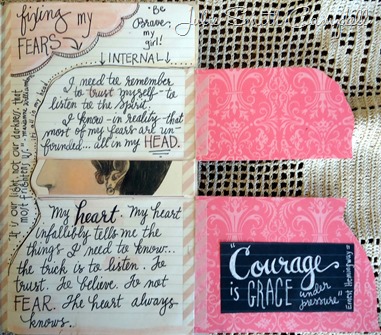 fixing my
FEARS
"Be
Brave,
my
girl!"
Julie Smith
INTERNAL
I need to remember
to trust myself - to
listen to the Spirit.
I know - in reality - that
most of my fears are un-
founded... all in my HEAD.
all in my head
"It is our light, not our darkness, that
most frightens us."
My heart. My heart
infallibly tells me the
things I need to know...
the trick is to listen. To
trust. To believe. To not
FEAR. The heart always
knows.
"Courage
is GRACE
under
pressure"
Ernest Hemingway